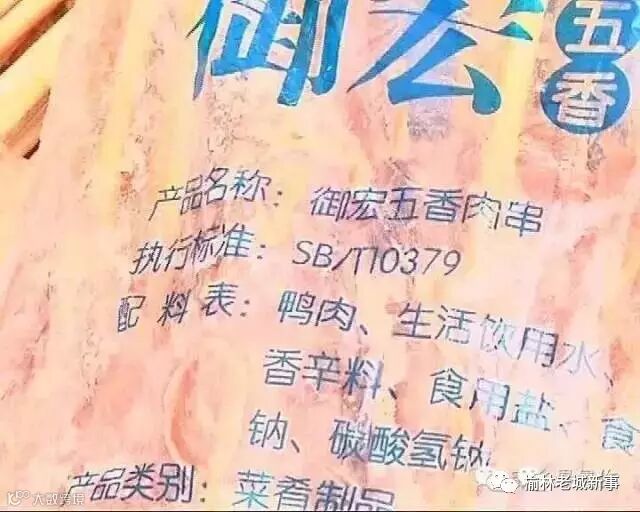 御宏
五香
产品名称：御宏五香肉串
执行标准：SB/T10379
配料表：鸭肉、生活饮用水、
香辛料、食用盐、食
钠、碳酸氢钠
产品类别：菜肴制品
榆林老城新事
大数跨境